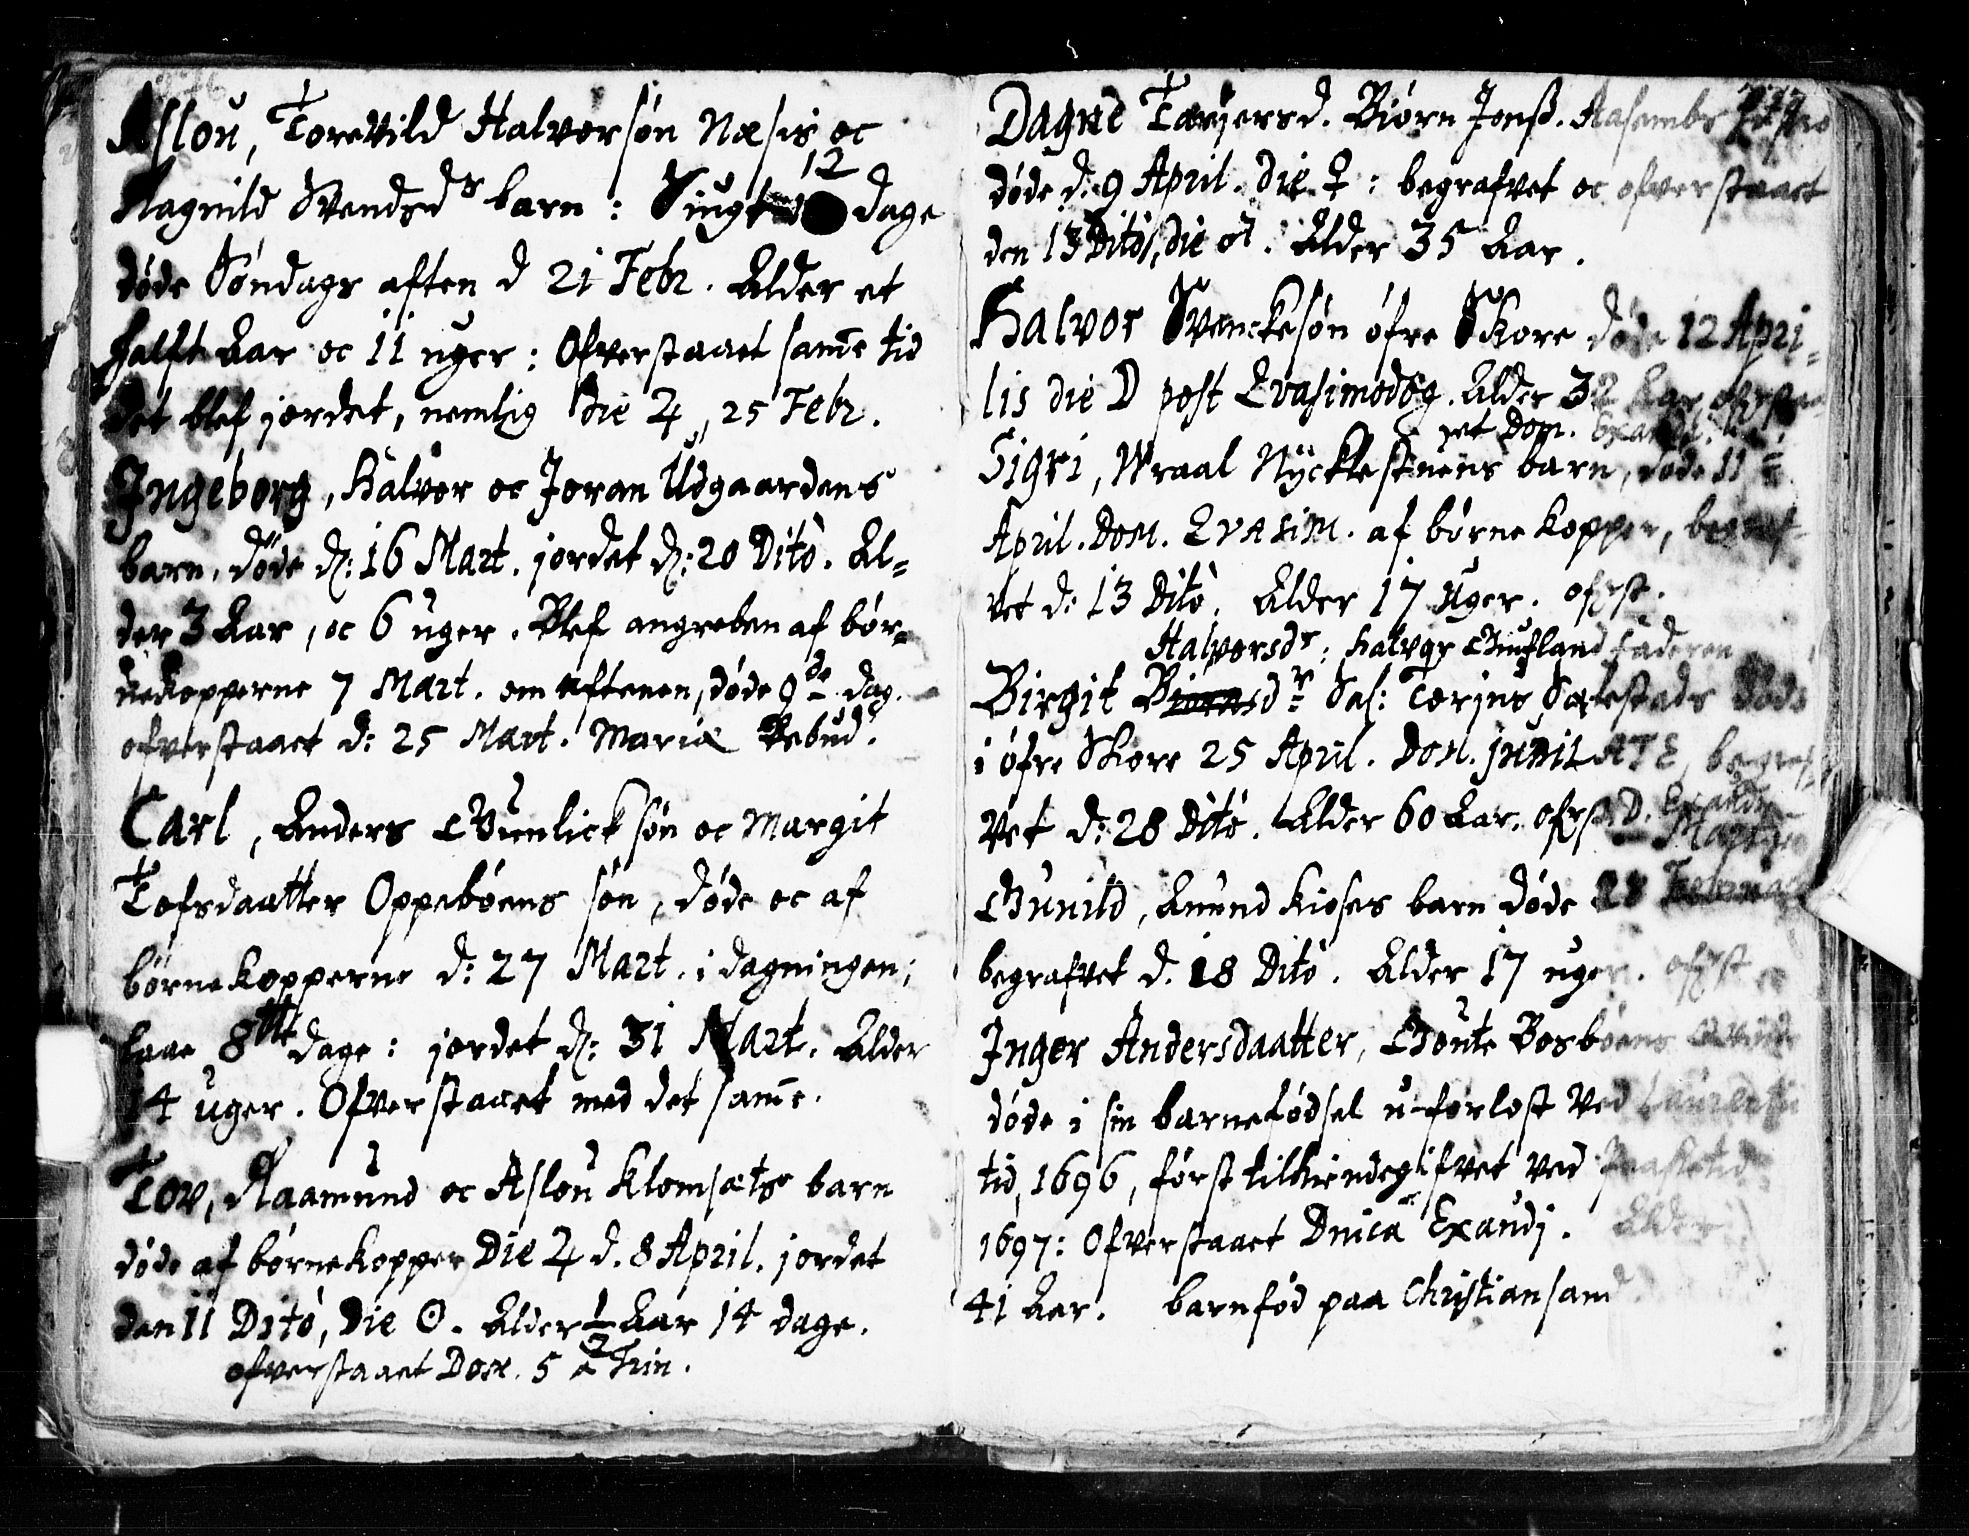 Aslou, Torevild Halvorsøn Næsis, oc
Ragnild Svendsds barn: Siugt 12 dage
døde Søndags aften d 21 Febr. Alder et
halft Aar oc 11 uger: Ofverstaaet same tid
det blef jordet, nemlig die ♃, 25 Febr.
Ingeborg, Halvor oc Joran Udgaardens
barn, døde d: 16 Mart. jordet d: 20 Dito. Al=
der 3 Aar, oc 6 uger. Blef angreben af bør=
nekopperne 7 Mart. om aftenen, døde 9de dag.
ofverstaaet d: 25 Mart. Mariæ Bebud.
Carl, Anders Gunlicksøn oc Margit
Tofsdaatter Oppebøens søn, døde oc af
børnekopperne d: 27 Mart. i dagningen;
laae 8tte dage: jordet d: 31 Mart. Alder
14 uger. Ofverstaaet med det same.
Tov, Aamund oc Aslou Klomsæts barn
døde af børnekopper Die ♃ d. 8 April. jordet
den 11 Dito, Die ☉. Alder ½ Aar 14 dage.
ofverstaaet Dom. 5 à Trin.
Dagne Tarjersd. Biørn Jonß. Aasembs
døde d. 9 April. die ♀: begrafvet oc ofverstaaet
den 13 Dito, die ♂. Alder 35 Aar.
Halvor Svenckesøn øfre Skore døde 12 Apri=
lis die ☽ post Qvasimodog. Alder 32 Aar,
et Dom. Exaudi.
Sigri, Wraal Nycklestuens barn, døde 11
April. Dom. Qvasim. af børnekopper, begraf=
vet d: 13 Dito. Alder 17 uger. ofrst.
Halvorsdr: Halvor Gufland Faderen
Birgit Biørnsdr Sal: Torjus Sælestads døde
i øfre Skore 25 April. Dom. JubilATE, begraf=
vet d: 28 Dito. Alder 60 Aar. ofrst. D. Exaudi
Martij
Gunild, Anund Kioses barn døde
begrafvet d. 18 Dito. Alder 17 uger. ofrst
Inger Andersdaatter, Goute Bosbøens Qvinde
døde i sin barnefødsel u-forløst ved Laurentij
tid, 1696, først tilkiendegifvet ved Paasketid
1697: Ofverstaaet Dnica Exaudj. Alder
41 Aar. barnfød paa Christiansand